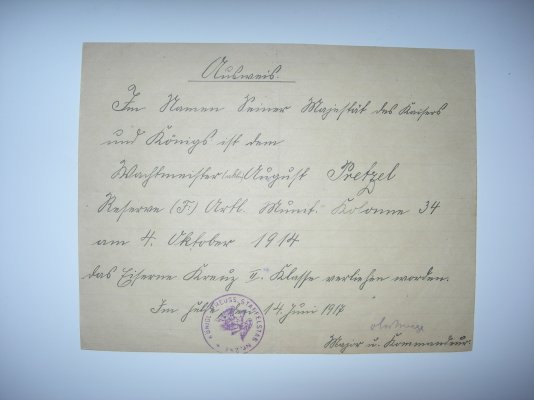 Ausweis.
Im Namen Seiner Majestät des Kaisers
und Königs ist dem
Wachtmeister August Pretzel
Reserve (F.) Artl. Munit. Kolonne 34
am 4. Oktober 1914
das Eiserne Kreuz II. Klasse verliehen worden.
Im Felde, den 14. Juni 1917
KÖNIGL. PREUSS. STAFFELSTAB
Major u. Kommandeur.